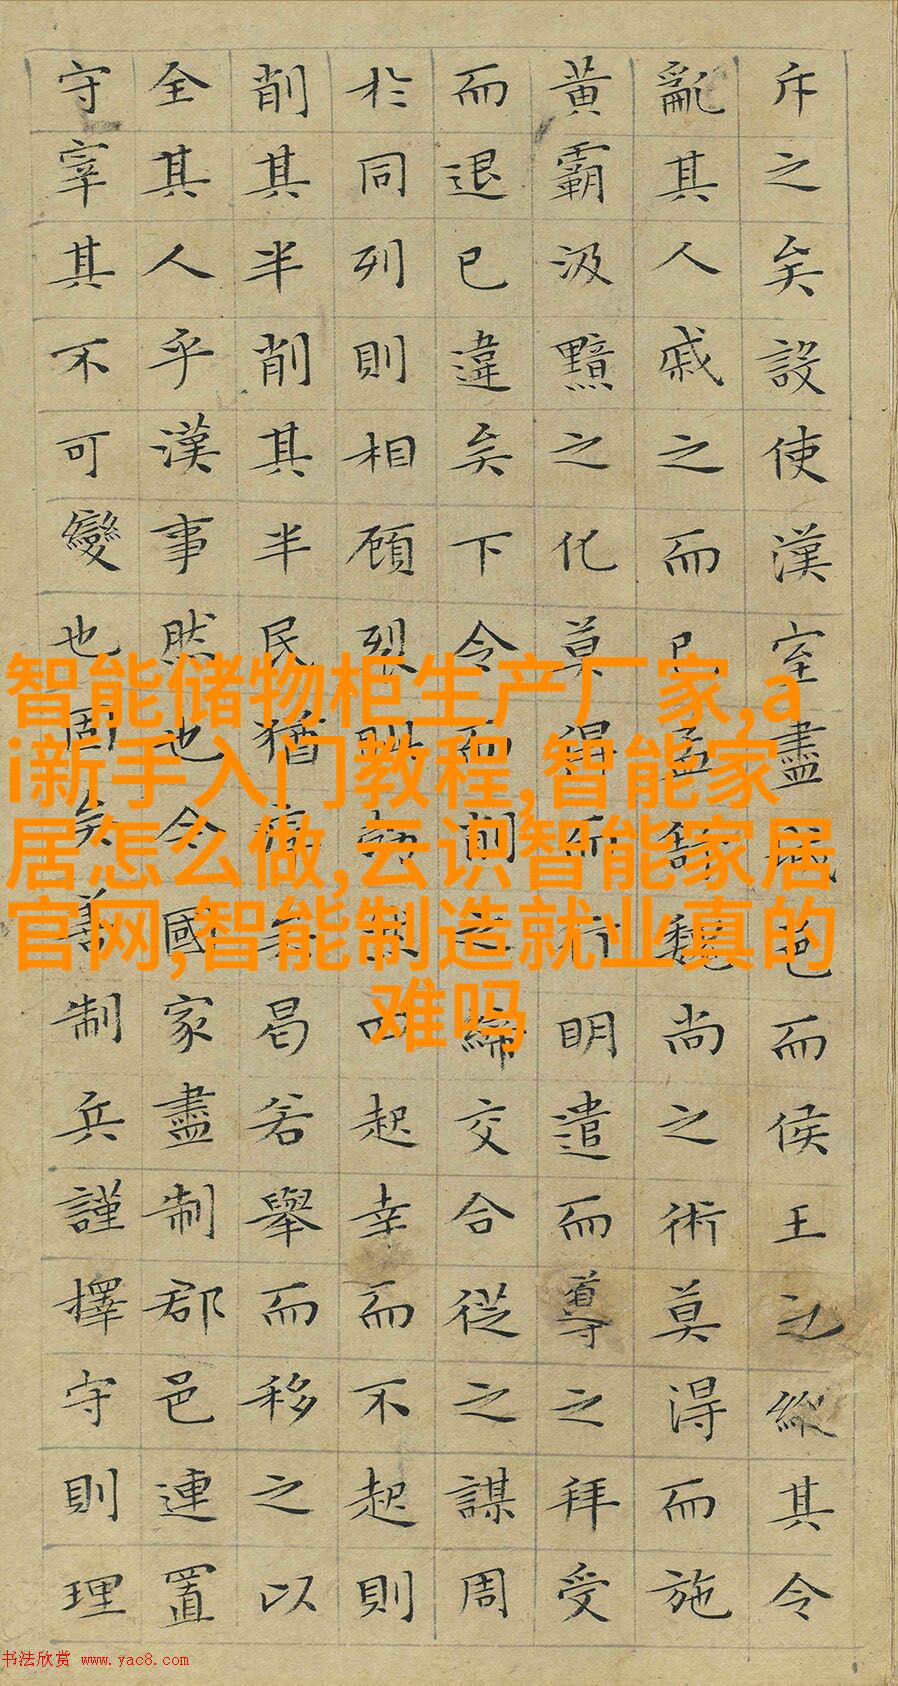 斥之矣設使漢室盡城邑而侯王之縱其令
亂其人戚之而已孟舒魏尚之術莫得而施
黃霸汲黯之化莫得而行明遣而導之拜受
而退已違矣下令而削之締交合從之謀周
於同列則相顧裂眦勃然而起幸而不起則
削其半削其半民猶瘁矣曷若舉而移之以
全其人乎漢事然也今國家盡制郡邑連置
守宰其不可變也固矣善制兵謹擇守則理
智能储物柜生产厂家,a
i新手入门教程,智能家
居怎么做,云识智能家居
官网,智能制造就业真的
难吗
书法欣赏 www.yac8.com